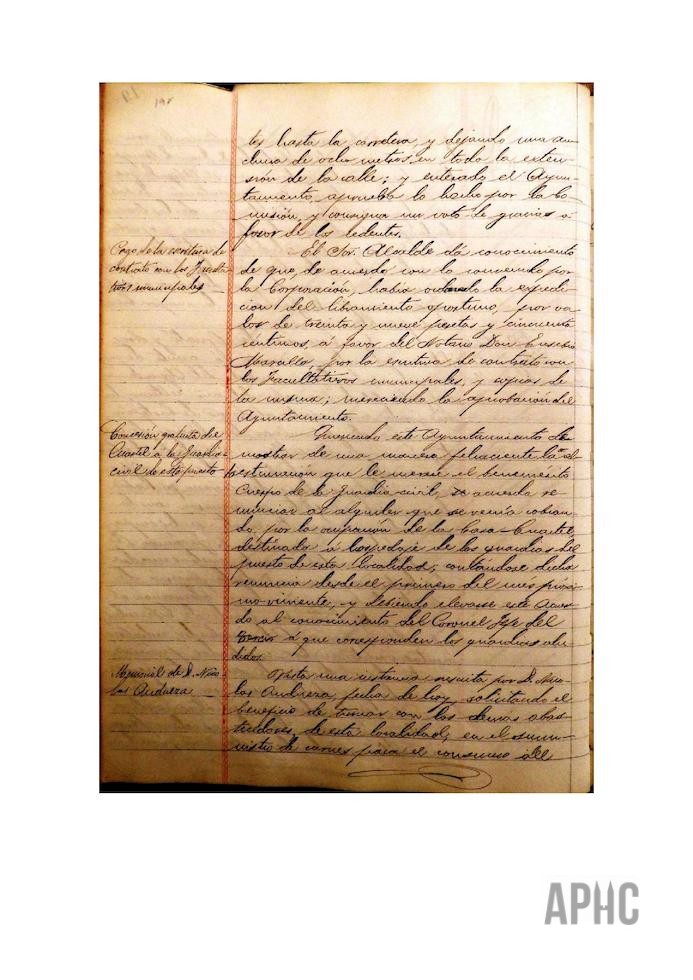 198
tes hasta la carretera, y dejando una an-
chura de ocho metros en toda la exten-
sión de la calle; y enterado el Ayun-
tamiento, aprueba lo hecho por la Co-
misión, y consigna un voto de gracias á
favor de los cedentes.
Pago de la escritura de
contrato con los Faculta-
tivos municipales
El Sor. Alcalde dá conocimiento
de que, de acuerdo con lo convenido por
la Corporación, había ordenado la expedi-
cion del libramiento oportuno, por va-
lor de treinta y nueve pesetas y cincuenta
centimos, á favor del Notario Don Eusebio
por la escritura de contrato con
los Facultativos municipales, y copias de
la misma; mereciendo la aprobación del
Ayuntamiento.
Concesión gratuita del
Cuartel á la Guardia
civil de este puesto
Queriendo este Ayuntamiento de-
mostrar de una manera fehaciente la al-
ta estimación que le merece el benemérito
Cuerpo de la Guardia civil, se acuerda re-
nunciar al alquiler que se venía cobran-
do, por la ocupación de la Casa-Cuartel
destinada á hospedaje de los guardias del
puesto de esta localidad; contándose dicha
renuncia desde el primero del mes próxi-
mo viniente, y debiendo elevarse este acuer-
do al conocimiento del Coronel Jefe del
Tercio á que corresponden los guardias alu-
didos.
Memorial de D. Nico-
las Andueza
Vista una instancia suscrita por D. Nico-
las Andueza, fecha de hoy, solicitando el
beneficio de turnar con los demas abas-
tecedores de esta localidad, en el sumi-
nistro de carnes para el consumo del
APHC